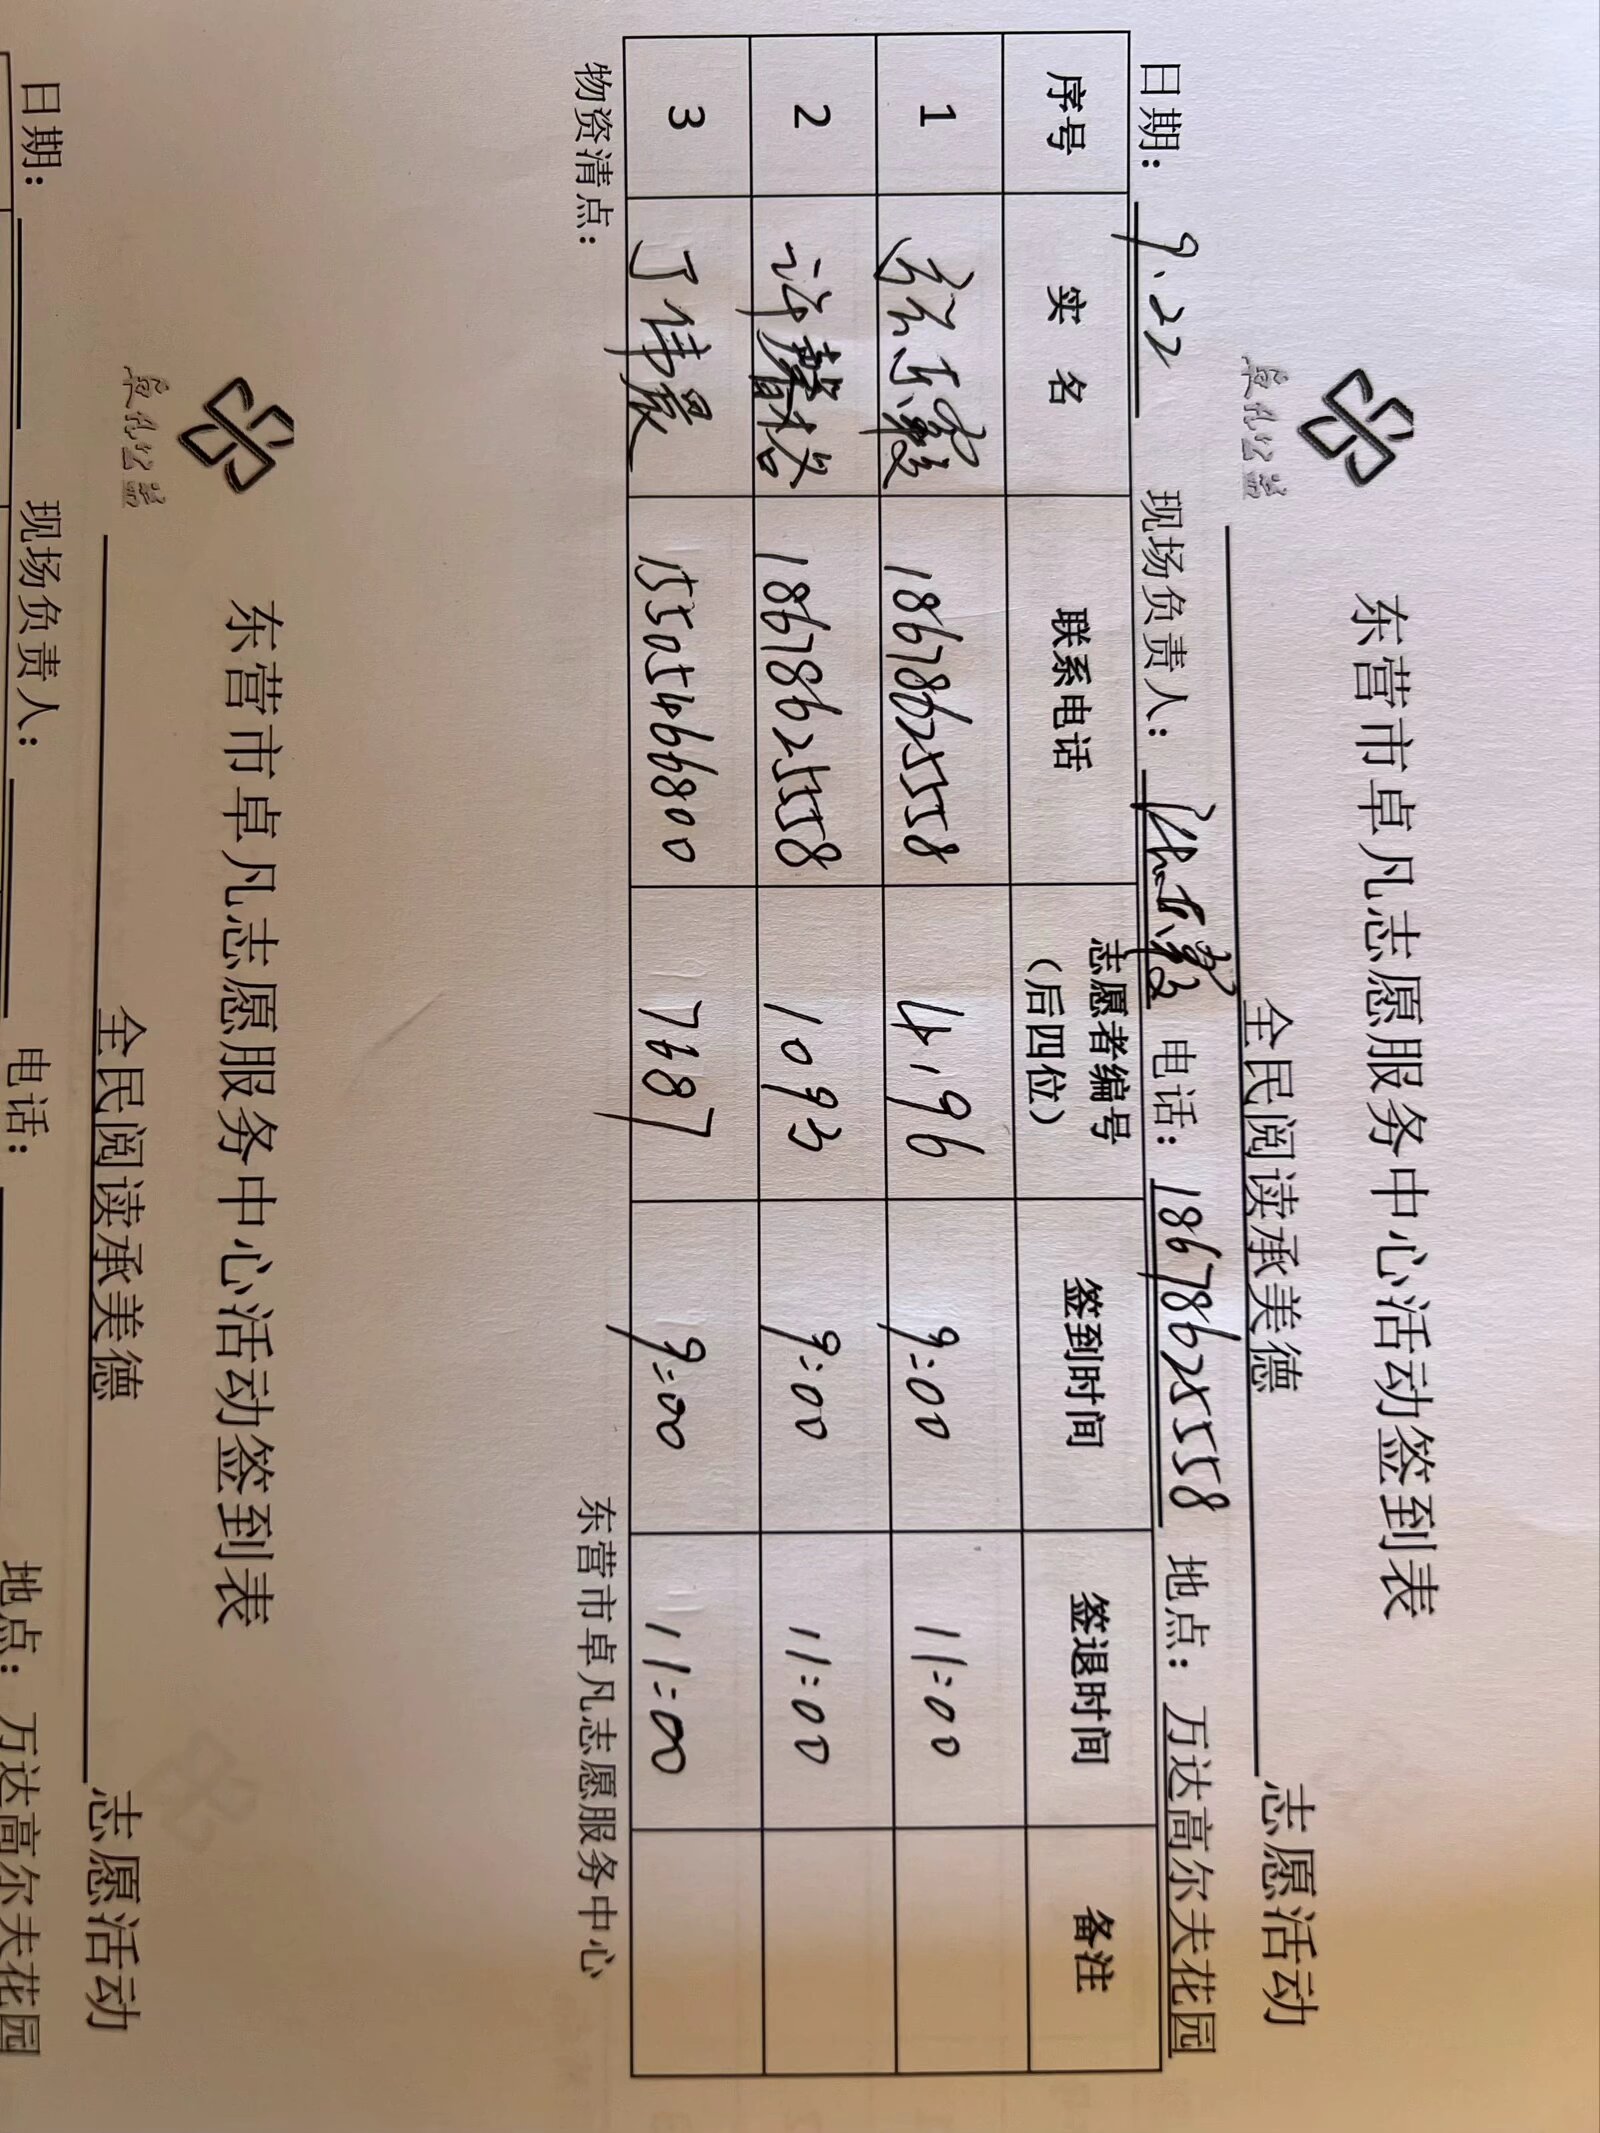 卓凡公益
东营市卓凡志愿服务中心活动签到表
全民阅读承美德 志愿活动
日期：9.22 现场负责人： 电话：18678625558 地点：万达高尔夫花园
序号 实名 联系电话 志愿者编号（后四位） 签到时间 签退时间 备注
1 18678625558 4196 9:00 11:00
2 许馨格 18678625558 1093 9:00 11:00
3 丁伟晨 15505466800 7687 9:00 11:00
物资清点： 东营市卓凡志愿服务中心
卓凡公益
东营市卓凡志愿服务中心活动签到表
全民阅读承美德 志愿活动
日期： 现场负责人： 电话： 地点：万达高尔夫花园